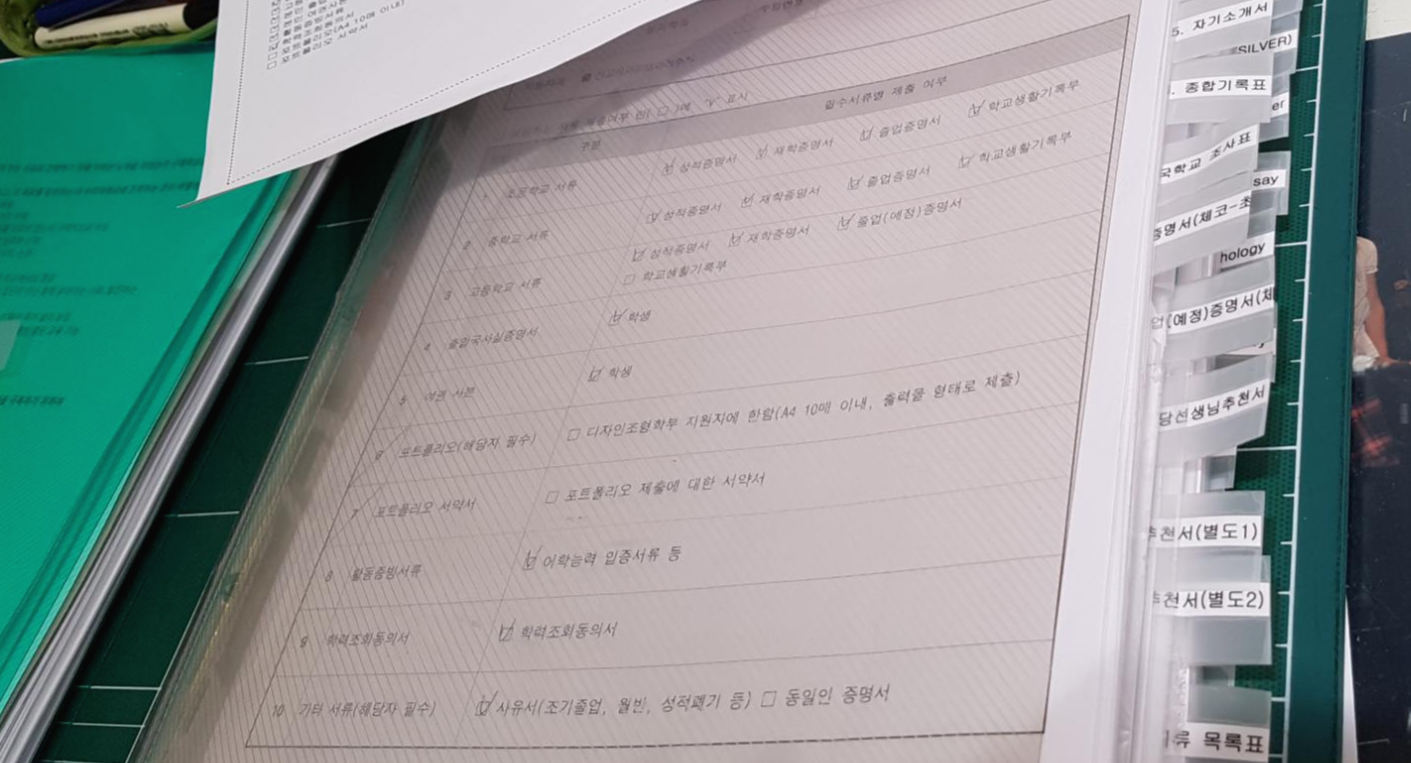 포트폴리오(A4 10매 이내)
포트폴리오 서약서
구분
필수서류별 제출 여부
1 초등학교 서류
☑ 성적증명서 ☑ 재학증명서 ☑ 졸업증명서 ☑ 학교생활기록부
2 중학교 서류
☑ 성적증명서 ☑ 재학증명서 ☑ 졸업증명서 ☑ 학교생활기록부
3 고등학교 서류
☑ 성적증명서 ☑ 재학증명서 ☑ 졸업(예정)증명서
☐ 학교생활기록부
4 출입국사실증명서
☑ 학생
5 여권 사본
☑ 학생
6 포트폴리오(해당자 필수)
☐ 디자인조형학부 지원자에 한함(A4 10매 이내, 출력물 형태로 제출)
7 포트폴리오 서약서
☐ 포트폴리오 제출에 대한 서약서
8 활동증빙서류
☑ 어학능력 입증서류 등
9 학력조회동의서
☑ 학력조회동의서
10 기타 서류(해당자 필수)
☑ 사유서(조기졸업, 월반, 성적폐기 등) ☐ 동일인 증명서
5. 자기소개서
SILVER)
종합기록표
er
국학교 조사표
say
증명서(체코-초
hology
(예정)증명서(체
당선생님추천서
추천서(별도1)
추천서(별도2)
류 목록표